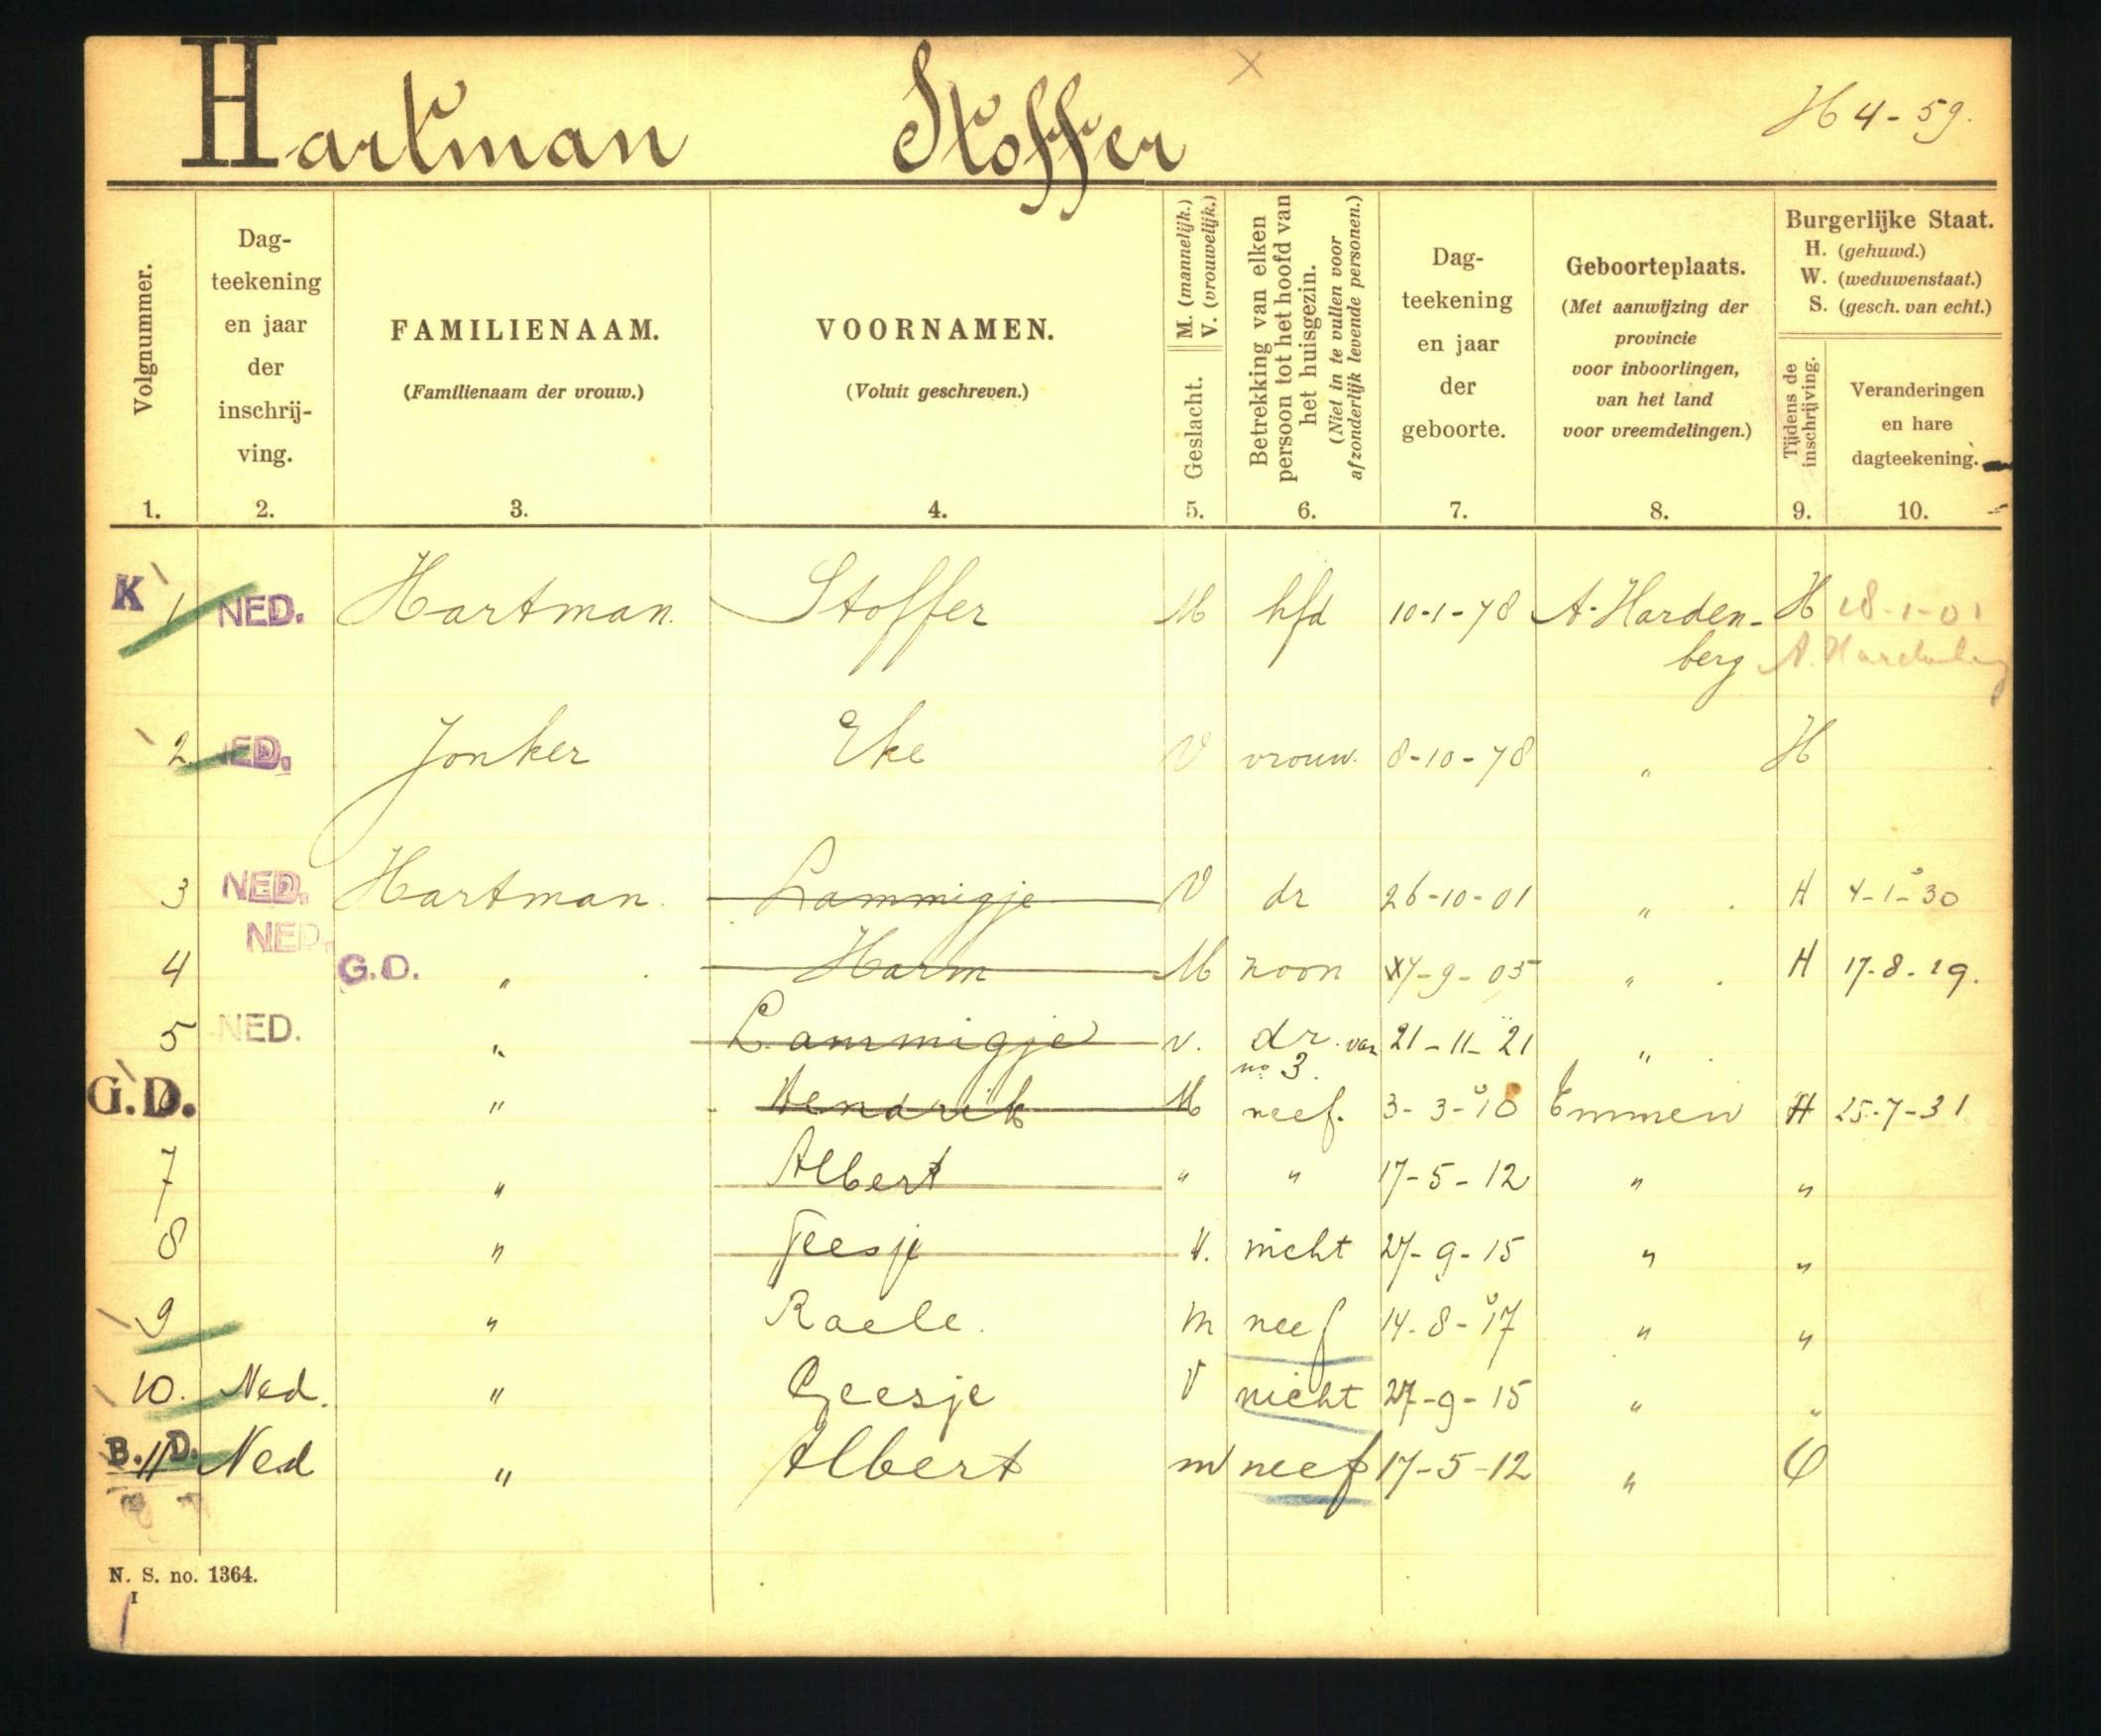 Hartman Stoffer
H 4-59.
Volgnummer.
1.
Dag-
teekening
en jaar
der
inschrij-
ving.
2.
FAMILIENAAM.
(Familienaam der vrouw.)
3.
VOORNAMEN.
(Voluit geschreven.)
4.
M. (mannelijk.)
V. (vrouwelijk.)
Geslacht.
5.
Betrekking van elken
persoon tot het hoofd van
het huisgezin.
(Niet in te vullen voor
afzonderlijk levende personen.)
6.
Dag-
teekening
en jaar
der
geboorte.
7.
Geboorteplaats.
(Met aanwijzing der
provincie
voor inboorlingen,
van het land
voor vreemdelingen.)
8.
Burgerlijke Staat.
H. (gehuwd.)
W. (weduwenstaat.)
S. (gesch. van echt.)
Tijdens de
inschrijving.
9.
Veranderingen
en hare
dagteekening.
10.
K 1 NED. Hartman. Stoffer M hfd 10-1-78 A-Harden- H 18-1-01
berg A. Hardenberg
2 NED. Jonker Eke V vrouw. 8-10-78 " H
3 NED. Hartman. Lammigje V dr 26-10-01 " H 4-1-30
NED.
4 G.D. " Harm M zoon 17-9-05 " H 17-8-29.
5 NED. " Lammigje v. dr. van 21-11-21 "
no 3.
G.D. " Hendrik M neef. 3-3-10 Emmen H 25-7-31
7 " Albert " " 17-5-12 " "
8 " Feesje V. nicht 27-9-15 " "
9 " Roele. m neef 14-8-17 " "
10. Ned. " Geesje V nicht 27-9-15 " "
B. 11 D. Ned " Albert m neef 17-5-12 "
N. S. no. 1364.
I